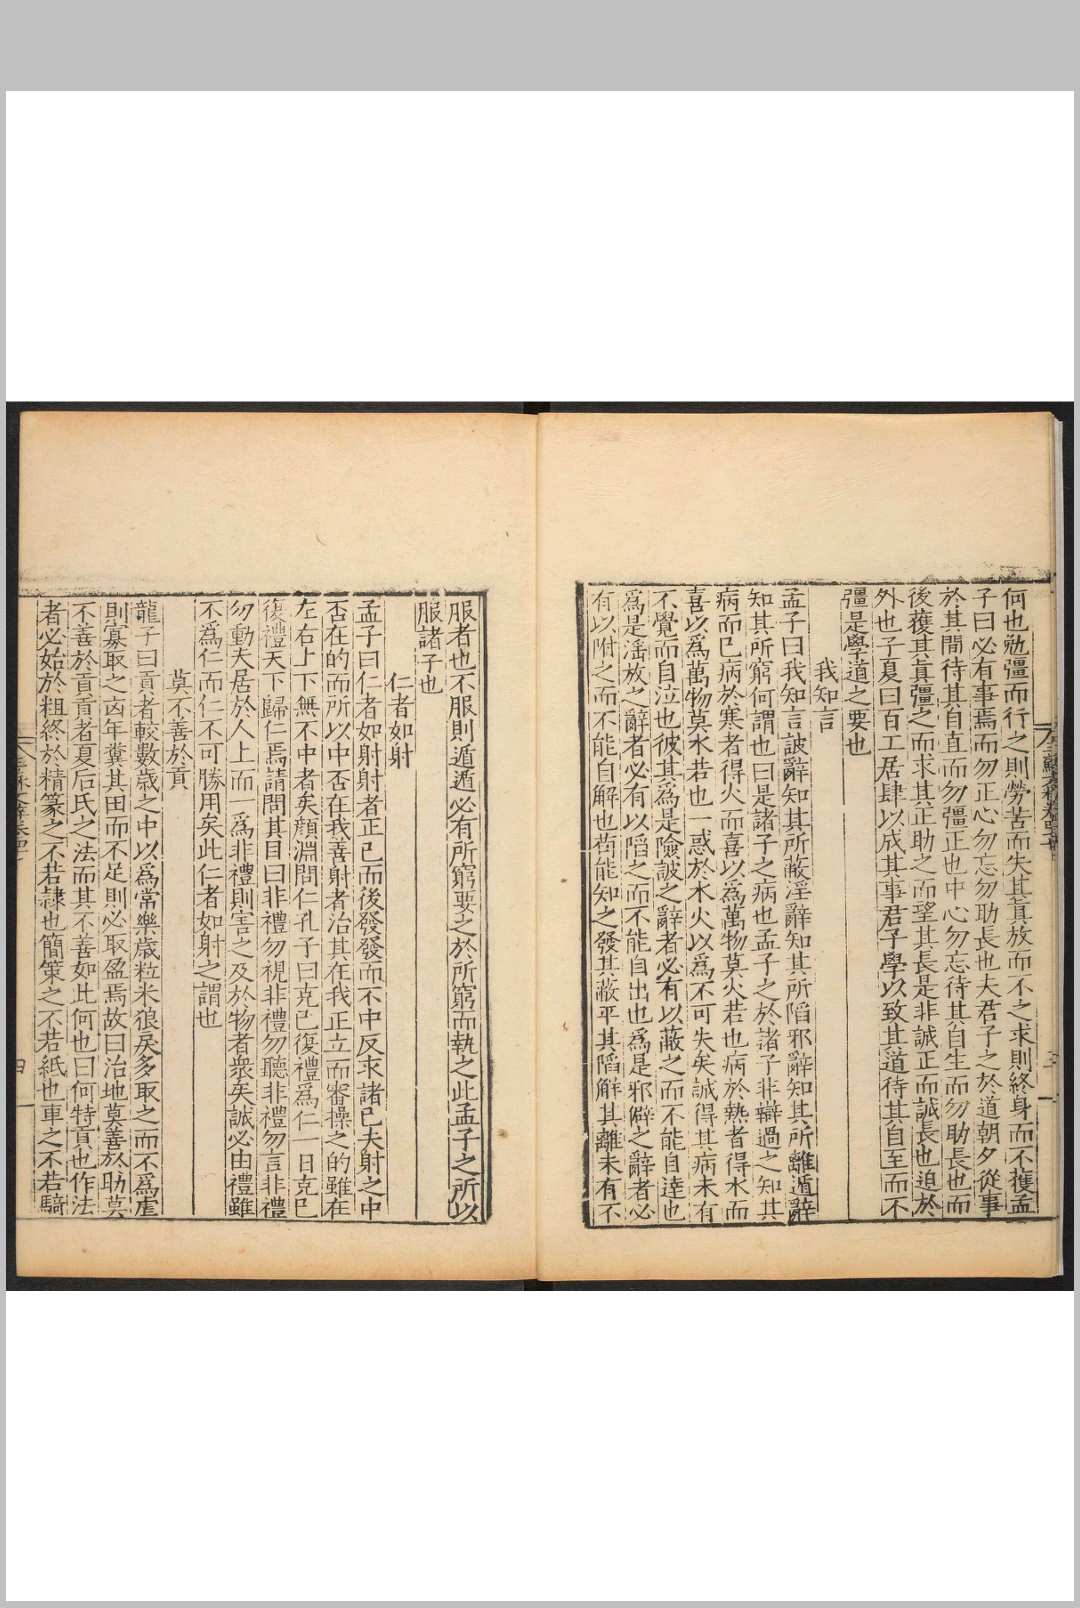 何也勉彊而行之則勞苦而失其真放而不之求則終身而不獲孟
子曰必有事焉而勿正心勿忘勿助長也夫君子之於道朝夕從事
於其間待其自直而勿彊正也中心勿忘待其自生而勿助長也而
後獲其真彊之而求其正助之而望其長是非誠正而誠長也迫於
外也子夏曰百工居肆以成其事君子學以致其道待其自至而不
彊是學道之要也
我知言
孟子曰我知言詖辭知其所蔽淫辭知其所陷邪辭知其所離遁辭
知其所窮何謂也曰是諸子之病也孟子之於諸子非辯過之知其
病而已病於寒者得火而喜以為萬物莫火若也病於熱者得水而
喜以為萬物莫水若也一惑於水火以為不可失矣誠得其病未有
不覺而自泣也彼其為是險詖之辭者必有以蔽之而不能自達也
為是淫放之辭者必有以陷之而不能自出也為是邪僻之辭者必
有以附之而不能自解也苟能知之發其蔽平其陷解其離未有不
服者也不服則遁遁必有所窮要之於所窮而執之此孟子之所以
服諸子也
仁者如射
孟子曰仁者如射射者正己而後發發而不中反求諸己夫射之中
否在的而所以中否在我善射者治其在我正立而審操之的雖在
左右上下無不中者矣顏淵問仁孔子曰克己復禮為仁一日克己
復禮天下歸仁焉請問其目曰非禮勿視非禮勿聽非禮勿言非禮
勿動夫居於人上而一為非禮則害之及於物者衆矣誠必由禮雖
不為仁而仁不可勝用矣此仁者如射之謂也
莫不善於貢
龍子曰貢者較數歲之中以為常樂歲粒米狼戾多取之而不為虐
則寡取之凶年糞其田而不足則必取盈焉故曰治地莫善於助莫
不善於貢貢者夏后氏之法而其不善如此何也曰何特貢也作法
者必始於粗終於精篆之不若隸也簡策之不若紙也車之不若騎
四